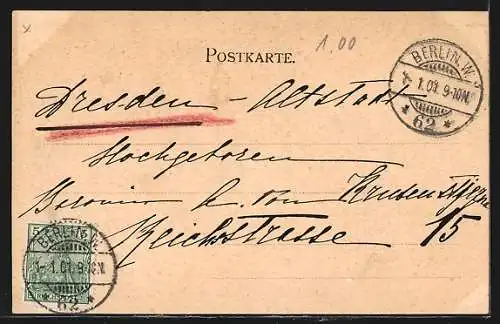 1.00
POSTKARTE.
BERLIN.W.
1.1.01.9-10N.
* 62 *
Dresden-Altstadt
Hochgeboren
Baronin v. von
Reichstrasse 15
5
BERLIN.W.
1.1.01.9-10N.
* 62 *